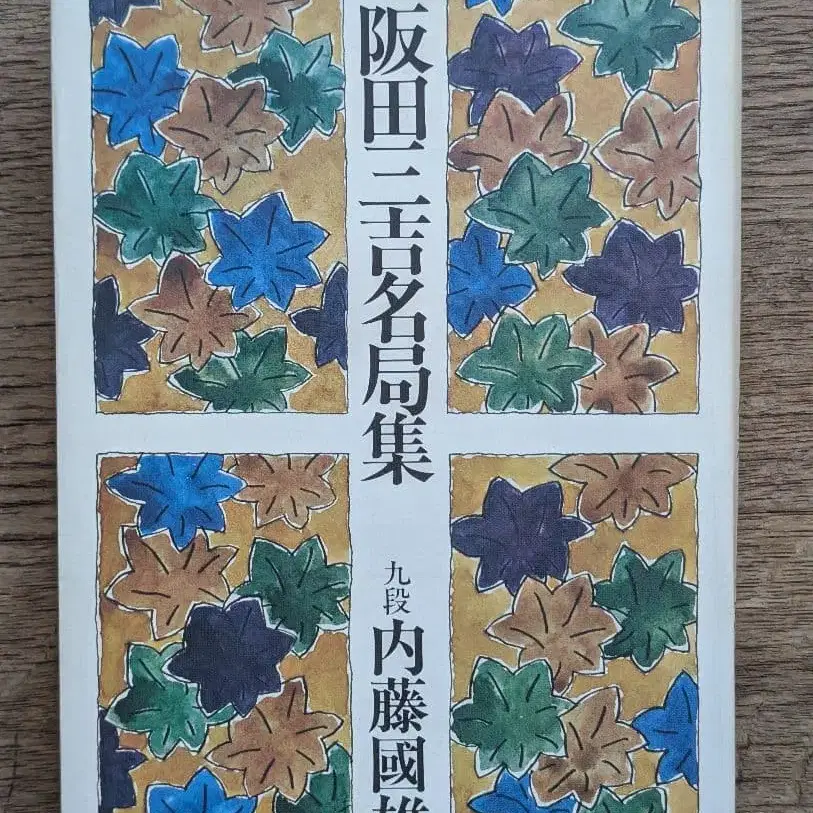 阪田三吉名局集
九段 内藤國雄